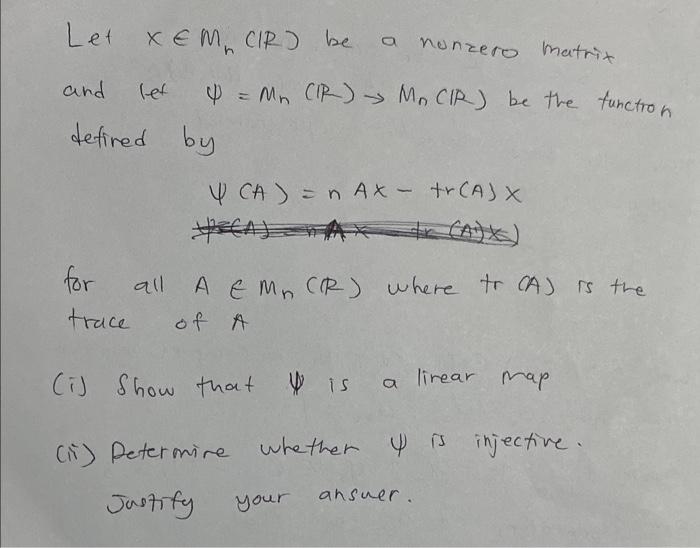 Let X ∈ Mn (IR) be a nonzero matrix
and let ψ = Mn (IR) → Mn (IR) be the function
defined by
ψ (A) = n AX - tr(A) X
for all A ∈ Mn (R) where tr (A) is the
trace of A
(i) Show that ψ is a linear map
(ii) Determine whether ψ is injective.
Justify your answer.